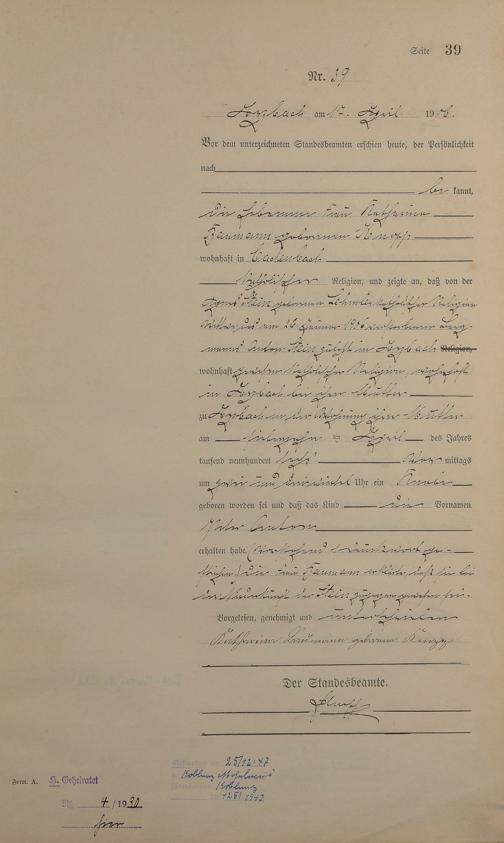 Seite 39
Nr. 39
am 17. April 1906.
Vor dem unterzeichneten Standesbeamten erschien heute, der Persönlichkeit
nach
be kannt,
die Hebamme Frau Katharina
Baumann geborene Knopp
wohnhaft in
katholischer Religion, und zeigte an, daß von der
Stein geborene katholischer Religion
Witwe des am 26 Januar 1906 verstorbenen Berg-
manns Anton Stein zuletzt in Religion,
wohnhaft gewesen katholischer Religion, wohnhaft
in bei ihrer Mutter
zu in der Wohnung ihrer Mutter
am siebzehn ten April des Jahres
tausend neunhundert sechs Vor mittags
um zwei und dreiviertel Uhr ein Knabe
geboren worden sei und daß das Kind die Vornamen
Peter Anton
erhalten habe. Vorstehend 1 Druckwort ge-
strichen. Die Frau Baumann erklärte, daß sie bei
der Niederkunft der Stein zugegen gewesen sei.
Vorgelesen, genehmigt und unterschrieben
Katharina Baumann geborene Knopp
Der Standesbeamte.
Form. A.
H. Geheiratet
Nr. 4/1930
hier
25/12.47
Koblenz
Koblenz